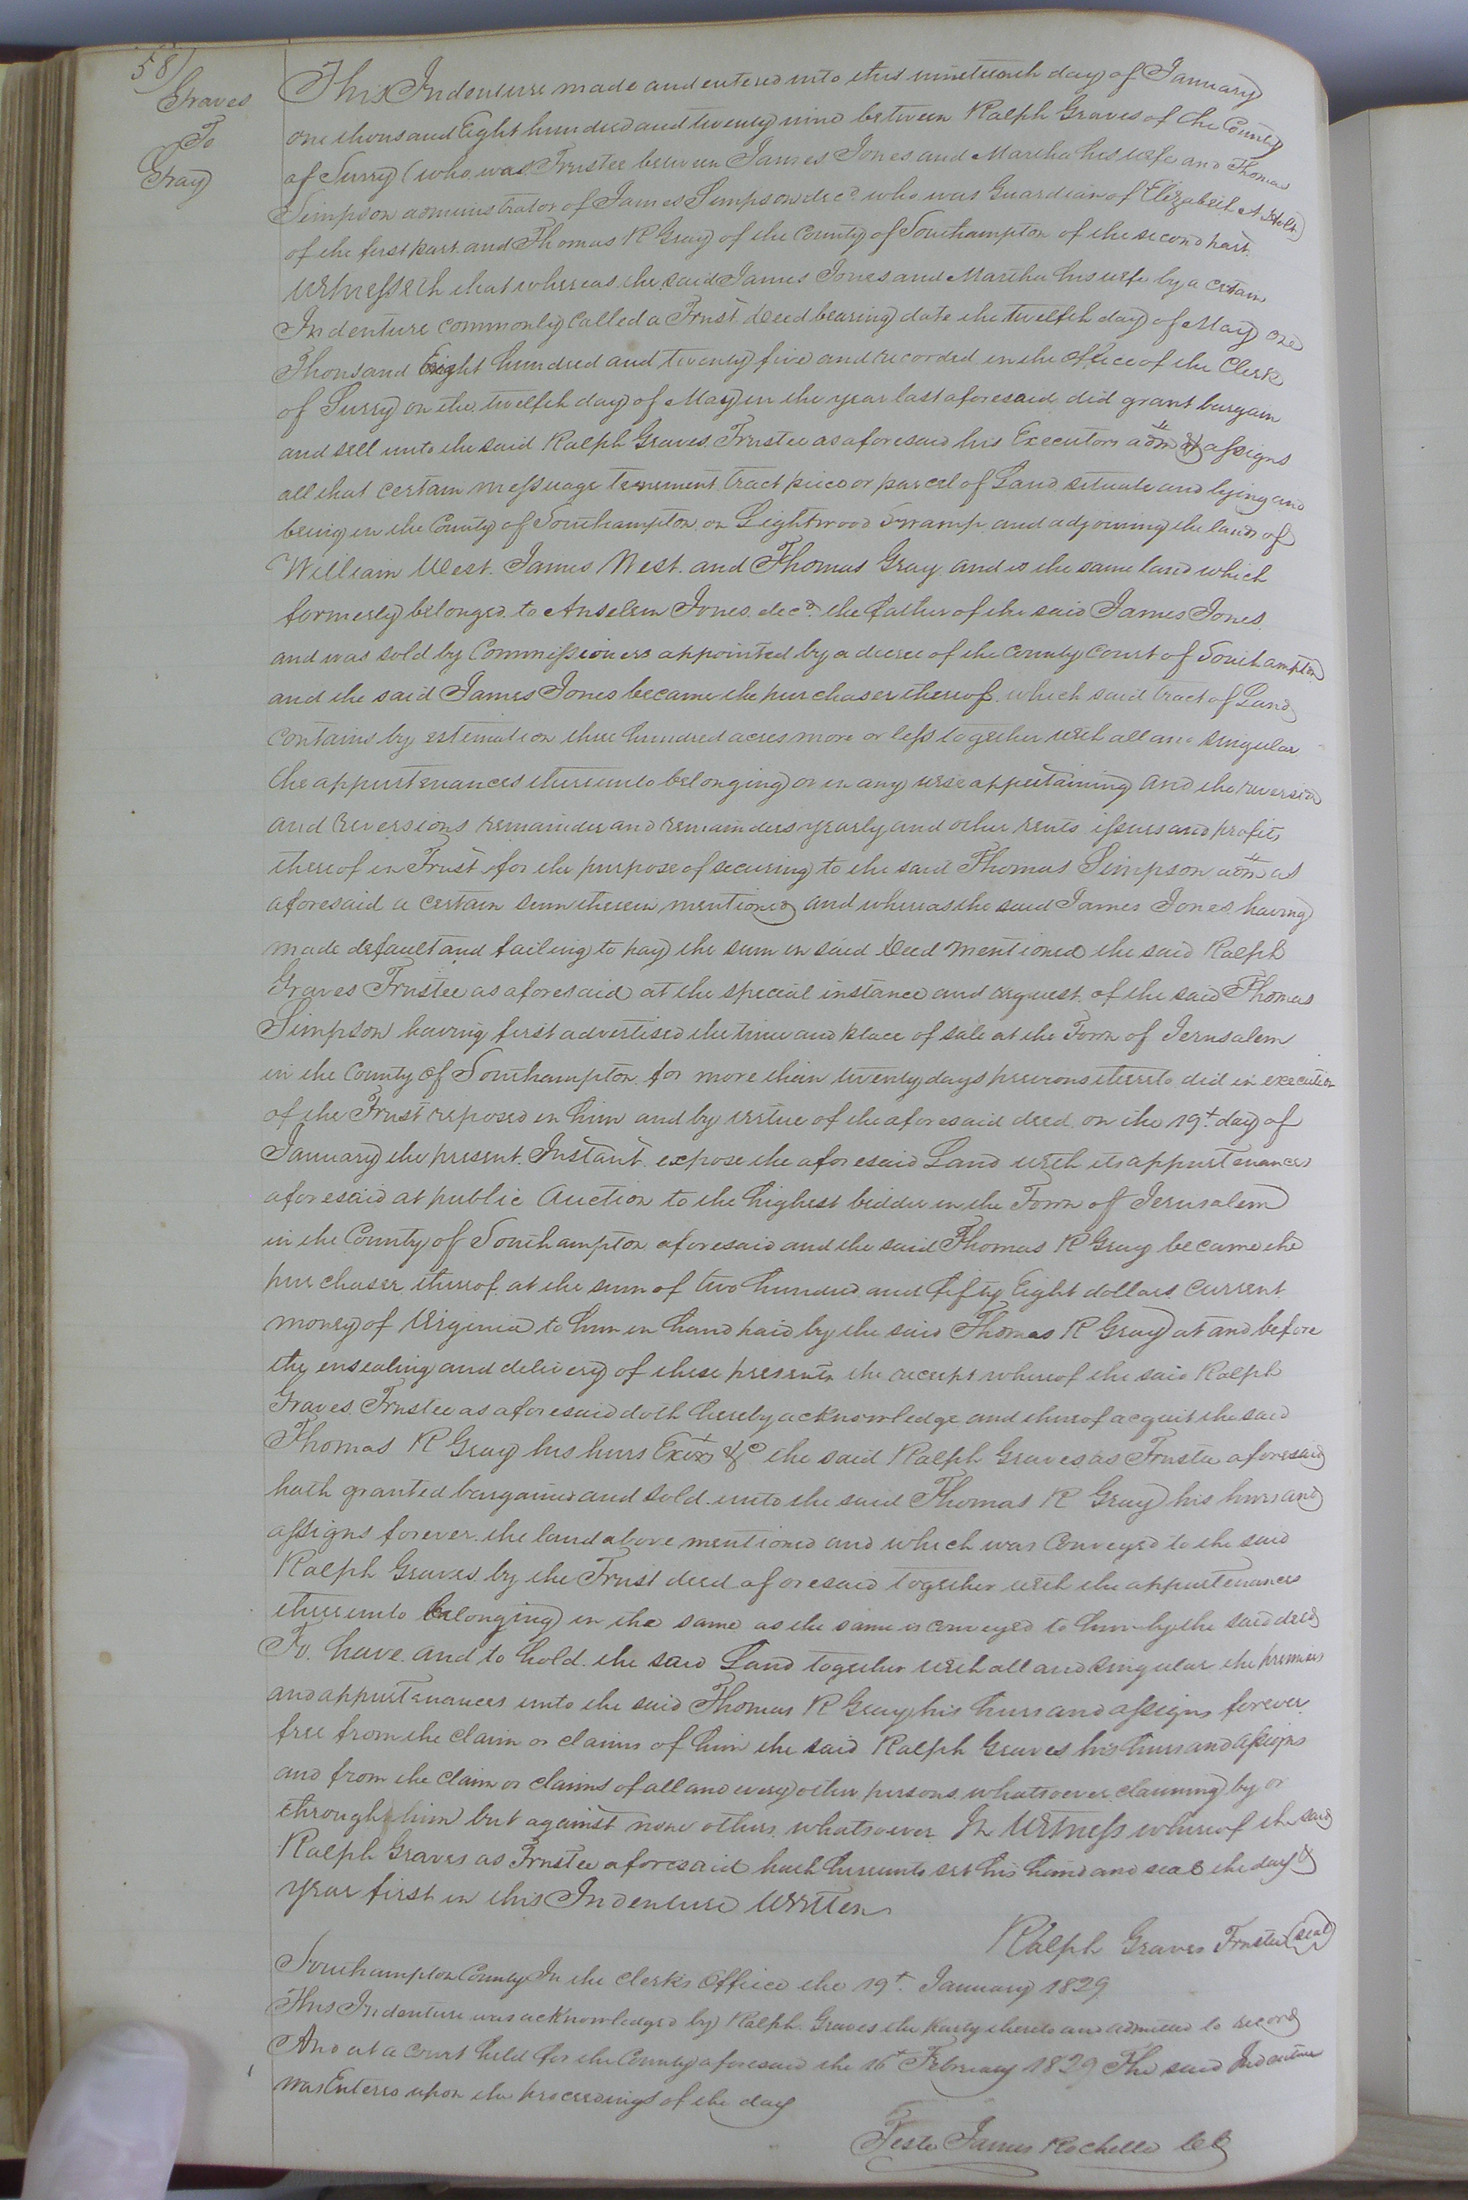 58)
Graves
To
Gray
This Indenture made and entered into this nineteenth day of January
one thousand Eight hundred and twenty nine between Ralph Graves of the County
of Surry (who was Trustee between James Jones and Martha his wife and Thomas
Simpson administrator of James Simpson decd. who was Guardian of Elizabeth A Holt)
of the first part and Thomas R Gray of the County of Southampton of the second part
Witnesseth that whereas the said James Jones and Martha his wife by a certain
Indenture commonly called a Trust Deed bearing date the twelfth day of May one
Thousand Eight hundred and twenty five and recorded in the office of the Clerk
of Surry on the twelfth day of May in the year last aforesaid did grant bargain
and sell unto the said Ralph Graves Trustee as aforesaid his Executors adm & assigns
all that certain messuage tenement tract piece or parcel of Land situate and lying and
being in the County of Southampton on Lightwood Swamp and adjoining the lands of
William West. James West. and Thomas Gray and is the same land which
formerly belonged to Anselem Jones decd. the father of the said James Jones
and was sold by Commissioners appointed by a decree of the County Court of Southampton
and the said James Jones became the purchaser thereof which said tract of Land
contains by estimation three hundred acres more or less together with all and singular
the appurtenances thereunto belonging or in any wise appertaining and the reversion
and reversions remainder and remainders yearly and other rents issues and profits
thereof in Trust for the purpose of securing to the said Thomas Simpson adm as
aforesaid a certain sum therein mentioned and whereas the said James Jones having
made default and failing to pay the sum in said Deed mentioned the said Ralph
Graves Trustee as aforesaid at the special instance and request of the said Thomas
Simpson having first advertised the time and place of sale at the Town of Jerusalem
in the County of Southampton for more than twenty days previous thereto did in execution
of the Trust reposed in him and by virtue of the aforesaid deed on the 19t. day of
January the present Instant expose the aforesaid Land with its appurtenances
aforesaid at public Auction to the highest bidder in the Town of Jerusalem
in the County of Southampton aforesaid and the said Thomas R Gray became the
purchaser thereof at the sum of two hundred and fifty Eight dollars current
money of Virginia to him in hand paid by the said Thomas R Gray at and before
the ensealing and delivery of these presents the receipt whereof the said Ralph
Graves Trustee as aforesaid doth hereby acknowledge and thereof acquit the said
Thomas R Gray his heirs Exors &c the said Ralph Graves as Trustee aforesaid
hath granted bargained and sold unto the said Thomas R Gray his heirs and
assigns forever the land above mentioned and which was Conveyed to the said
Ralph Graves by the Trust deed aforesaid together with the appurtenances
thereunto belonging in the same as the same is conveyed to him by the said deed
To have and to hold the said Land together with all and singular the premises
and appurtenances unto the said Thomas R Gray his heirs and assigns forever
free from the claim or claims of him the said Ralph Graves his heirs and assigns
and from the claim or claims of all and every other persons whatsoever claiming by or
through him but against none others whatsoever In Witness whereof the said
Ralph Graves as Trustee aforesaid hath hereunto set his hand and seal the day &
year first in this Indenture Written
Ralph Graves Trustee (seal)
Southampton County In the Clerks Office the 19t. January 1829
This Indenture was acknowledged by Ralph Graves the party thereto and admitted to record
And at a Court held for the County aforesaid the 16t February 1829 The said Indenture
was Entered upon the proceedings of the day
Teste James Rochelle CC